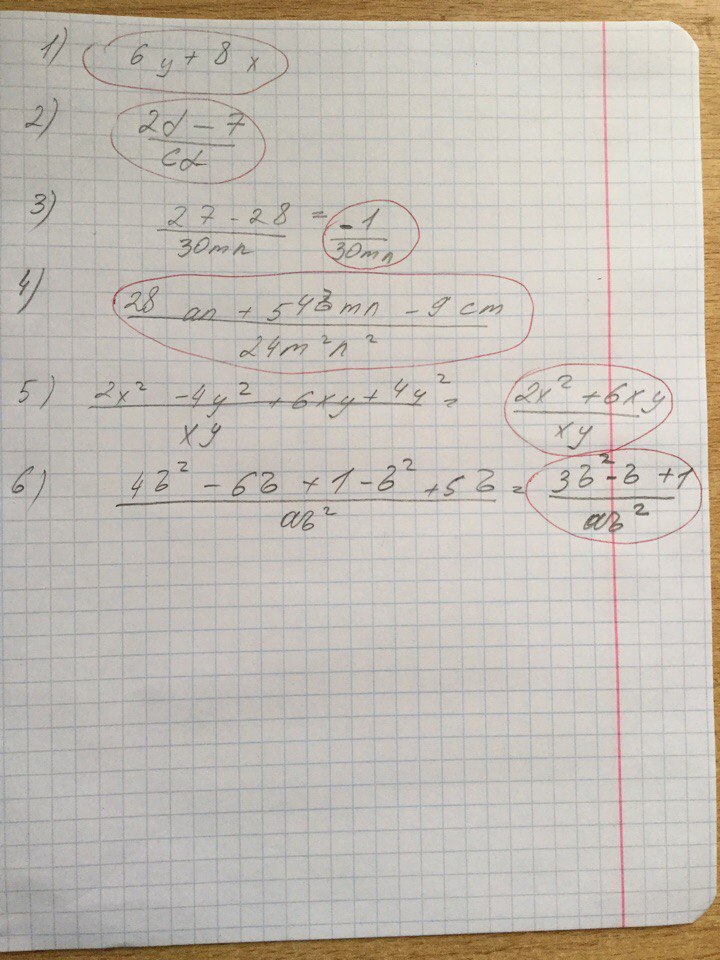 1) 6y + 8x
2) (2d - 7)/(cd)
3) (27 - 28)/(30mn) = -1/(30mn)
4) (28an + 54bmn - 9cm)/(24m²n²)
5) (2x² - 4y² + 6xy + 4y²)/(xy) = (2x² + 6xy)/(xy)
6) (4b² - 6b + 1 - b² + 5b)/(ab²) = (3b² - b + 1)/(ab²)